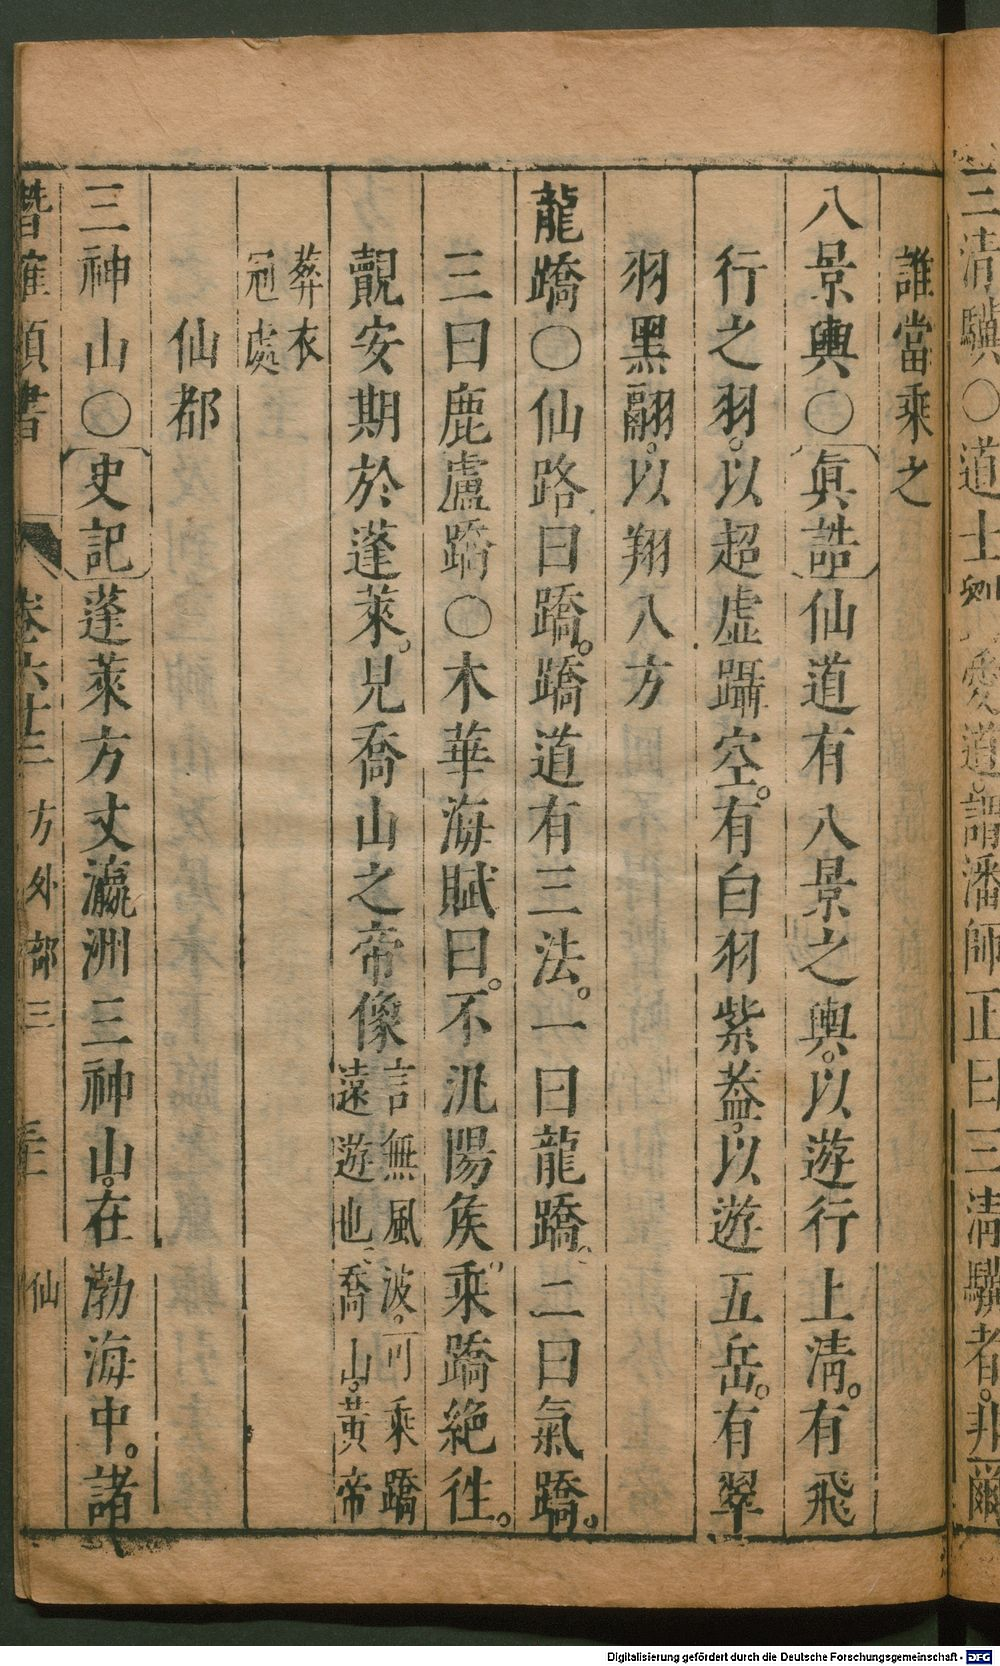 三清驥〇道士劉愛道謂潘師正曰三清驥者非爾
誰當乘之
八景輿〇眞誥仙道有八景之輿。以遊行上清。有飛
行之羽。以超虛躡空。有白羽紫葢。以遊五岳。有翠
羽黑翮。以翔八方
龍蹻〇仙路曰蹻。蹻道有三法。一曰龍蹻。二曰氣蹻。
三曰鹿盧蹻〇木華海賦曰。不汎陽侯乘蹻絶徃。
覿安期於蓬萊。見喬山之帝像
言無風波。可乘蹻
遠遊也、喬山。黃帝
葬衣
冠處
仙都
三神山〇史記蓬萊方丈瀛洲三神山。在渤海中。諸
潛確類書 卷六十三 方外部三 仙
Digitalisierung gefördert durch die Deutsche Forschungsgemeinschaft - DFG